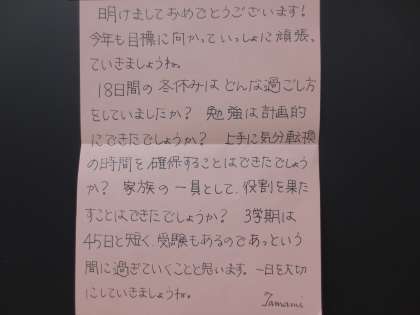 明けましておめでとうございます!
今年も目標に向かっていっしょに頑張っ
ていきましょうね。
18日間の冬休みはどんな過ごし方
をしていましたか? 勉強は計画的
にできたでしょうか? 上手に気分転換
の時間を確保することはできたでしょう
か? 家族の一員として、役割を果た
すことはできたでしょうか? 3学期は
45日と短く、受験もあるのであっという
間に過ぎていくことと思います。一日を大切
にしていきましょうね。
Tamami